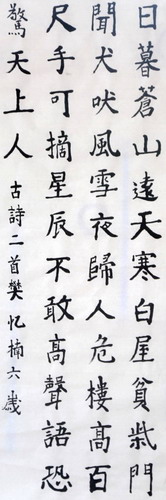 日暮蒼山遠天寒白屋貧柴門
聞犬吠風雪夜歸人危樓高百
尺手可摘星辰不敢高聲語恐
驚天上人 古詩二首樊忆楠六歲